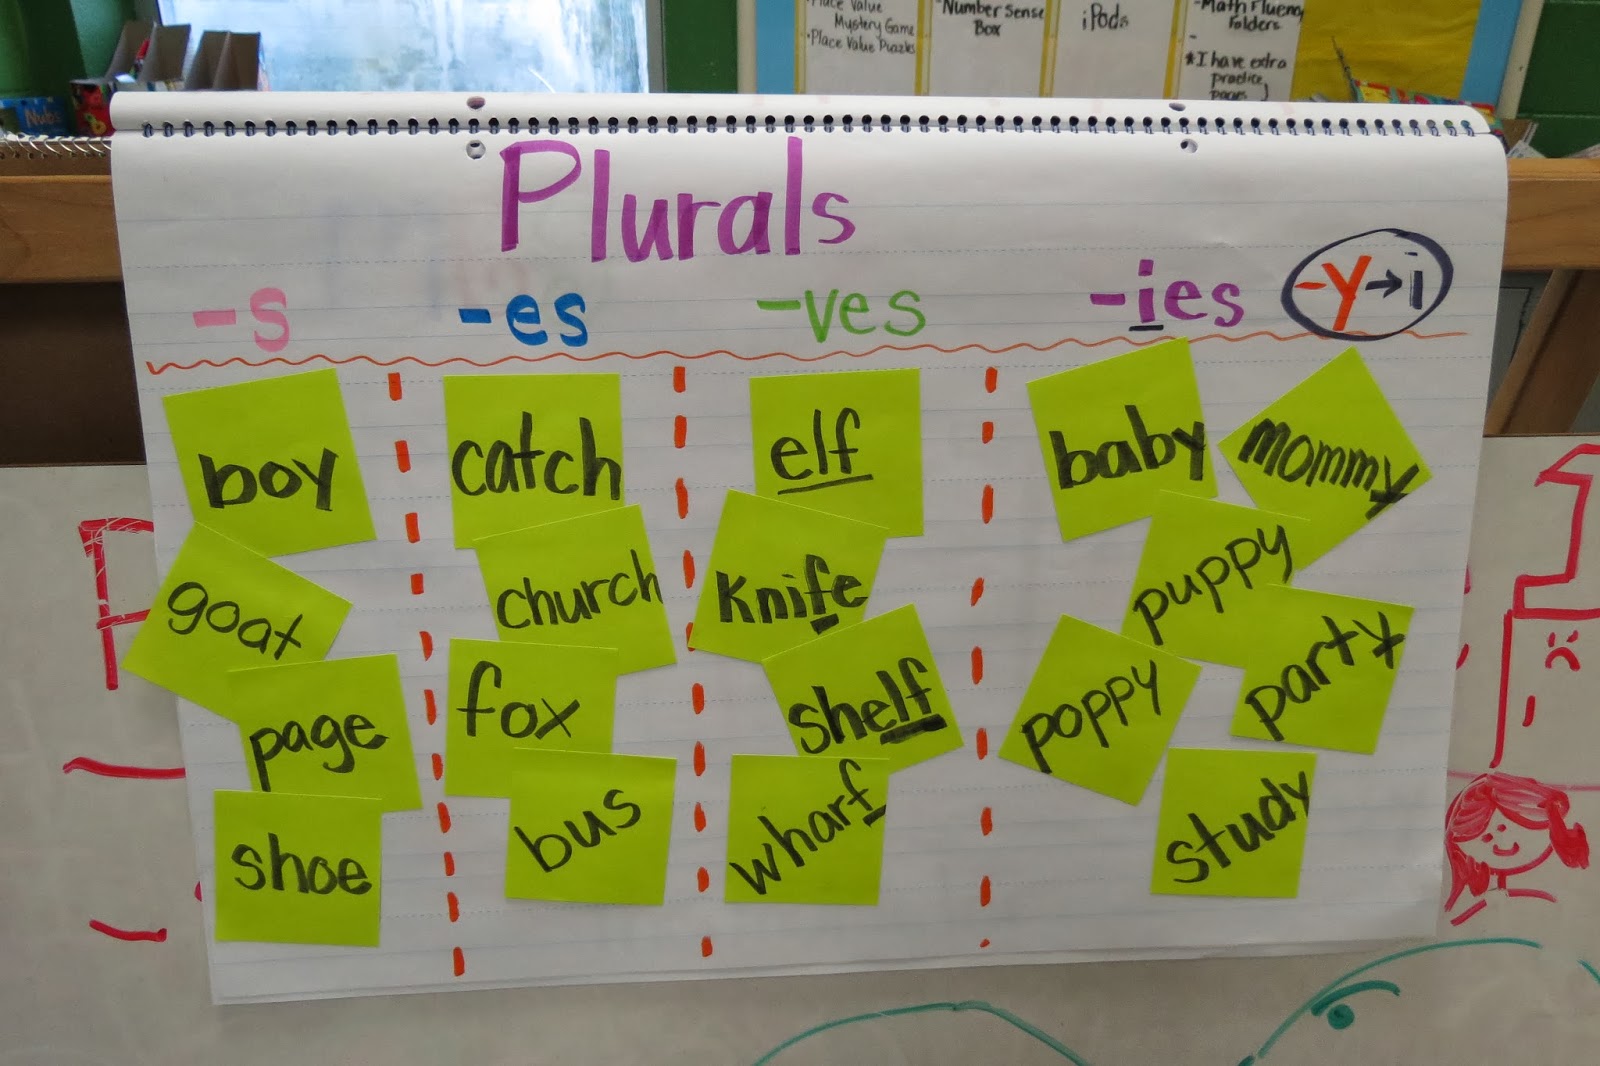 Place Value
Mystery Game
• Place Value Puzzles
-Number Sense
Box
iPods
-Math Fluency
Folders
-
*I have extra
practice
pages
Nubs
Plurals
-s
-es
-ves
-ies
-y→i
boy
goat
page
shoe
catch
church
fox
bus
elf
knife
shelf
wharf
baby
mommy
puppy
party
poppy
study